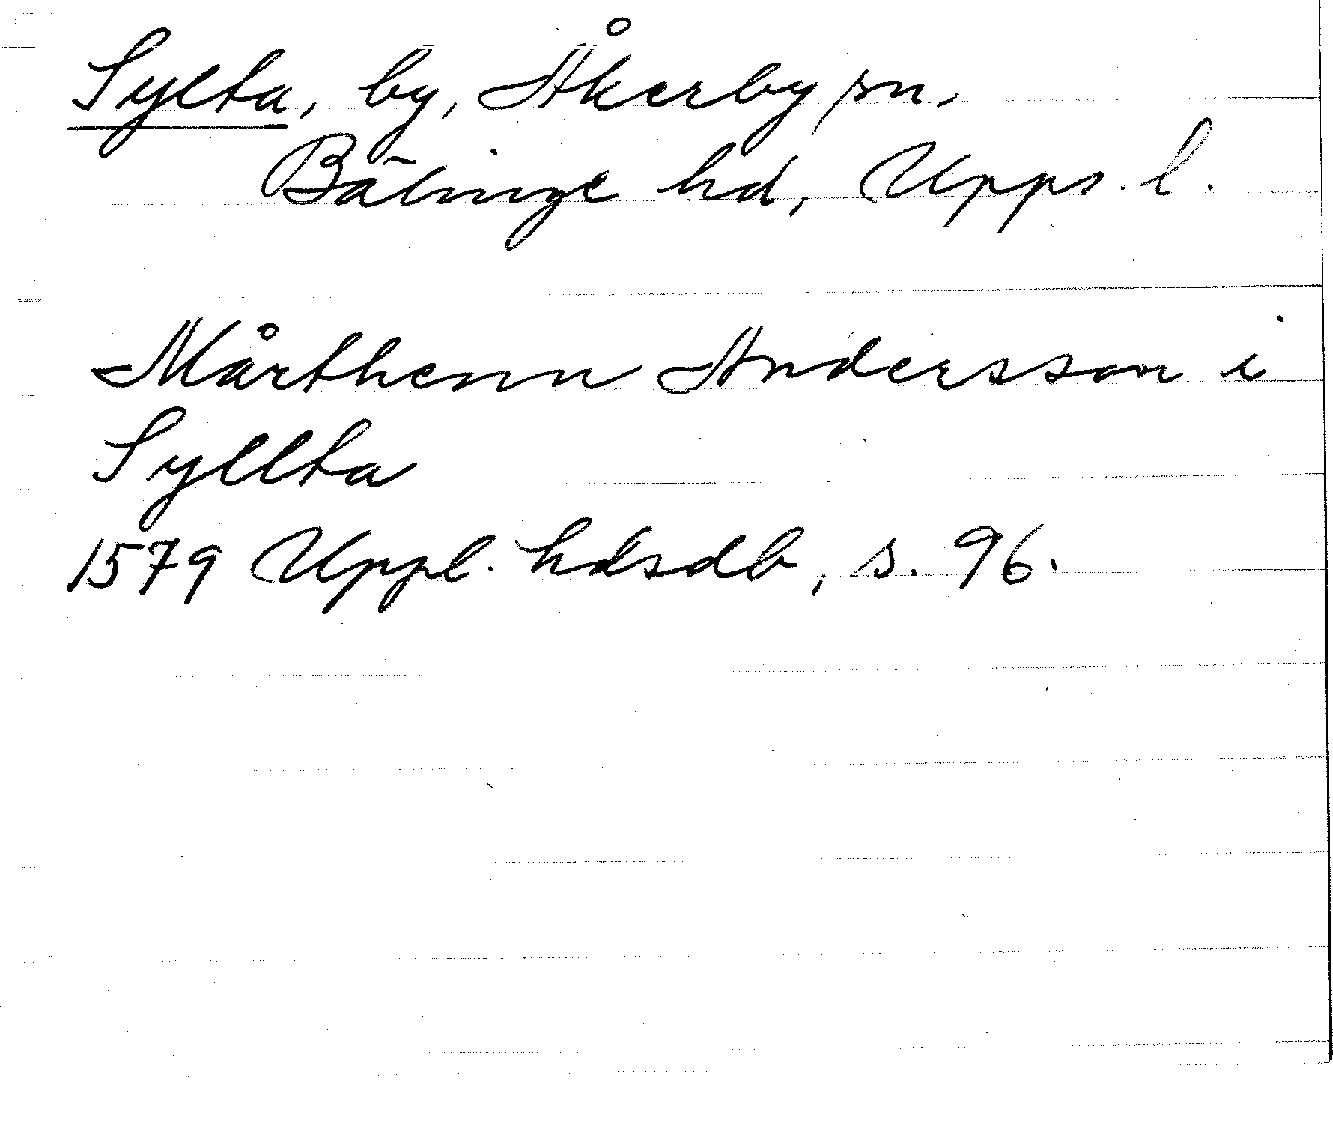 Sylta, by, Åkerby sn.
Bälinge hd, Upps. l.
Mårthenn Andersson i
Syllta
1579 Uppl. hdsdb, s. 96.